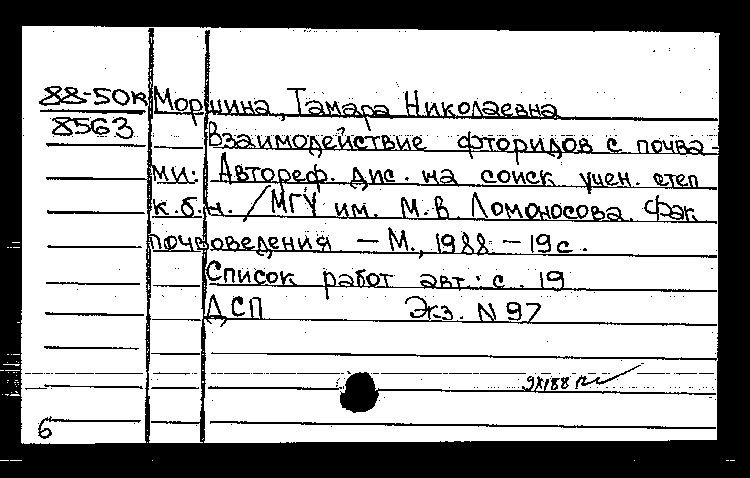 88-50к Моршина, Тамара Николаевна
8563
Взаимодействие фторидов с почва-
ми: Автореф. дис. на соиск учен. степ
к.б.н. / МГУ им. М.В Ломоносова. Фак
почвоведения – М., 1988. – 19 с.
Список работ авт.: с. 19
ДСП Экз. N 97
6